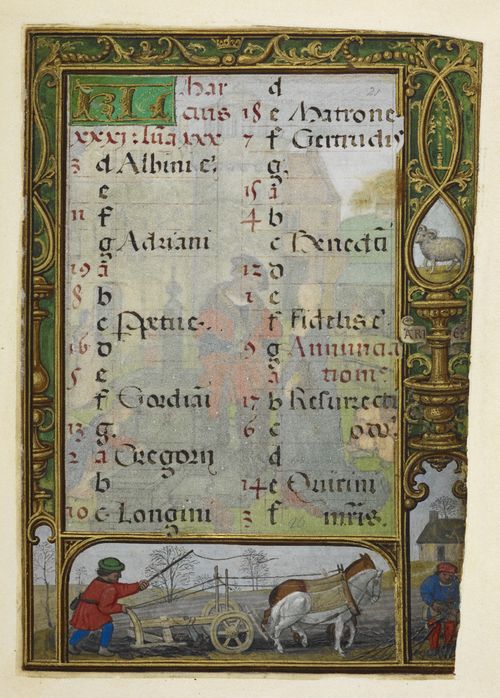 KL Mar
cius
xxxi : lūa xxx
3 d Albini e.
e
11 f
g Adriani
19 a
8 b
c Pertue.
16 d
5 e
f Gordiāi
13 g
2 a Gregorij
b
10 c Longini
21
d
18 e Matrone
7 f Gertrudis
g
15 a
4 b
c Benedcti
12 d
1 e
f Fidelis e.
9 g Annuncia
a tione
17 b Resurrecti
6 c
d
14 e Quirini
3 f mris.
ARIES